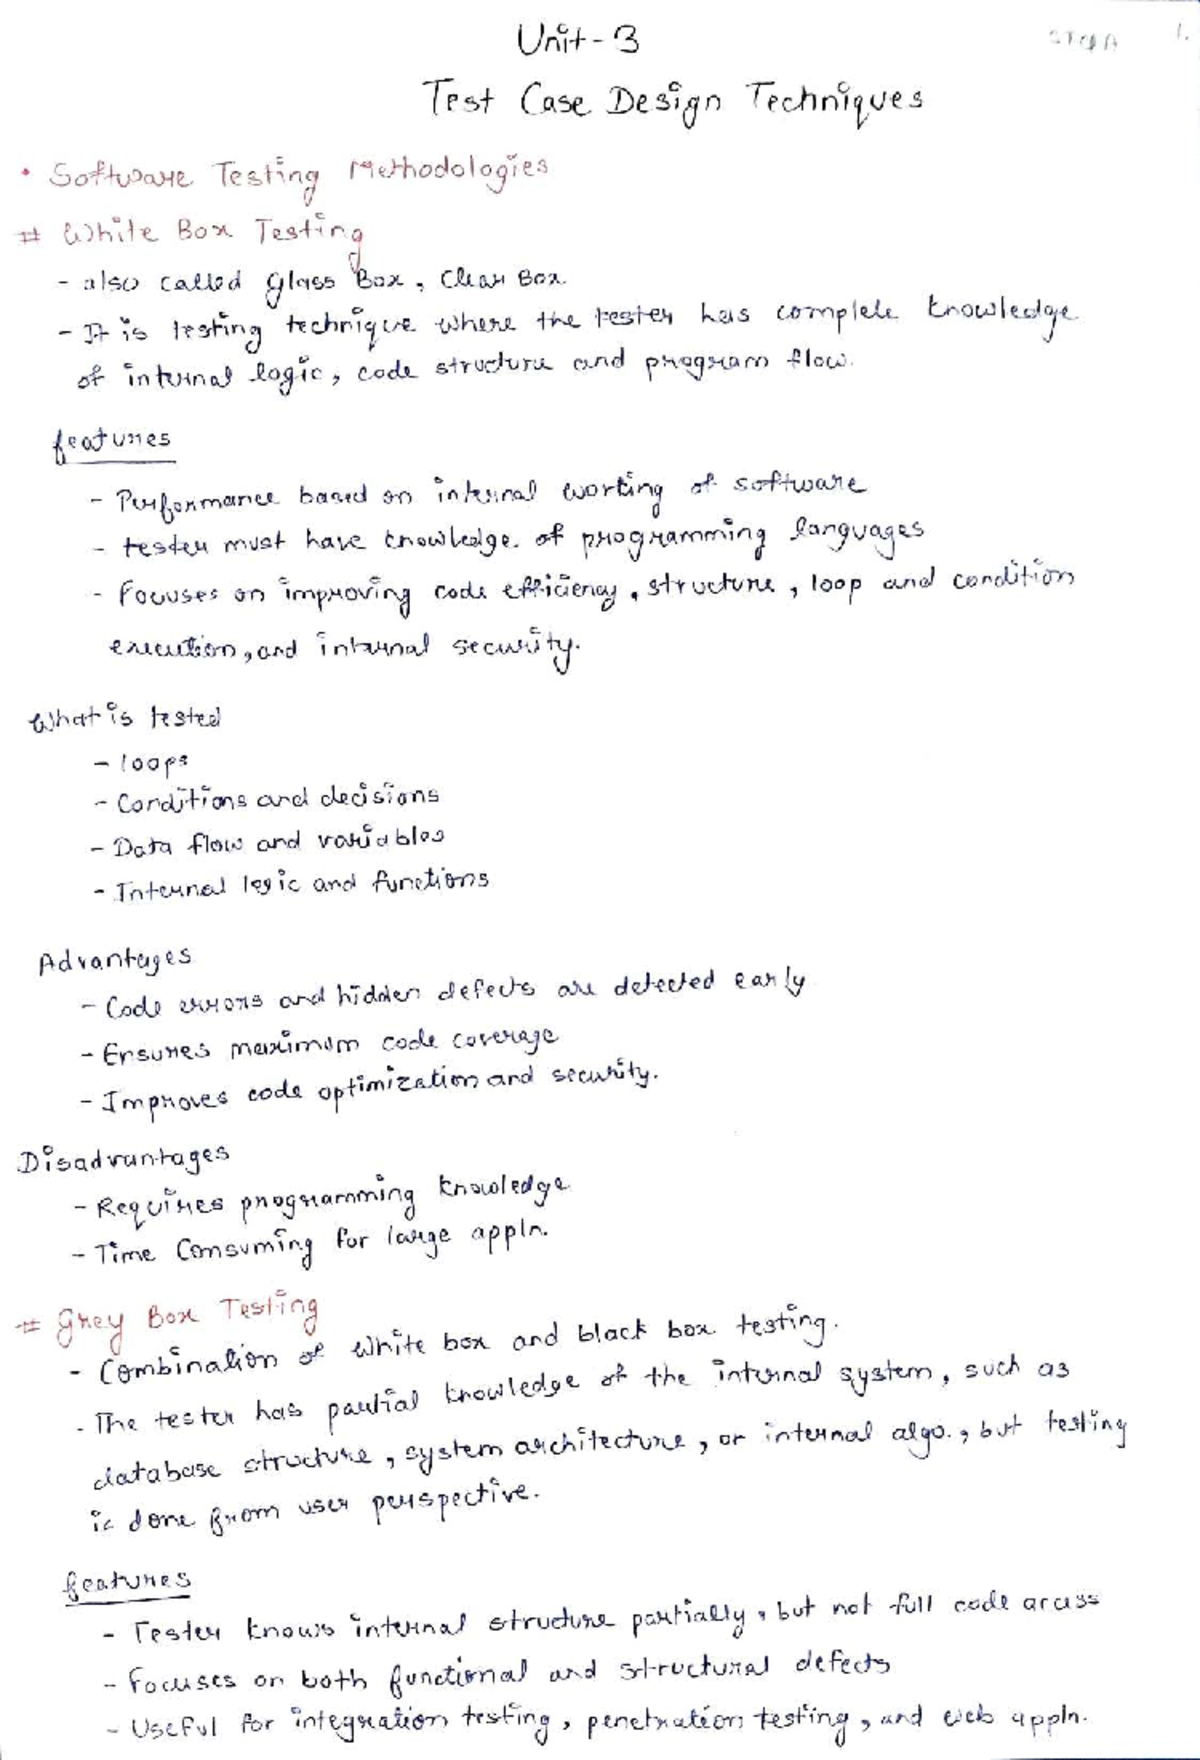 Unit-3
STQA 1.
Test Case Design Techniques
• Software Testing Methodologies
# White Box Testing
- also called Glass Box, Clear Box
- It is testing technique where the tester has complete knowledge
of internal logic, code structure and program flow.
features
- Performance based on internal working of software
- tester must have knowledge of programming languages
- Focuses on improving code efficiency, structure, loop and condition
execution, and internal security.
What is tested
- loops
- Conditions and decisions
- Data flow and variables
- Internal logic and functions
Advantages
- Code errors and hidden defects are detected early
- Ensures maximum code coverage
- Improves code optimization and security.
Disadvantages
- Requires programming knowledge
- Time Consuming for large appln.
# Grey Box Testing
- Combination of White box and black box testing.
- The tester has partial knowledge of the internal system, such as
database structure, system architecture, or internal algo., but testing
is done from user perspective.
features
- Tester knows internal structure partially, but not full code access
- Focuses on both functional and structural defects
- Useful for integration testing, penetration testing, and web appln.